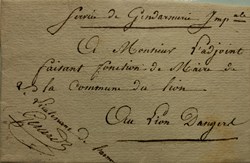 Service de Gendarmerie Imp^ale
A Monsieur L'adjoint
faisant fonction de Maire de
la Commune du Lion
Au Lion D'angers
Lieutenant de